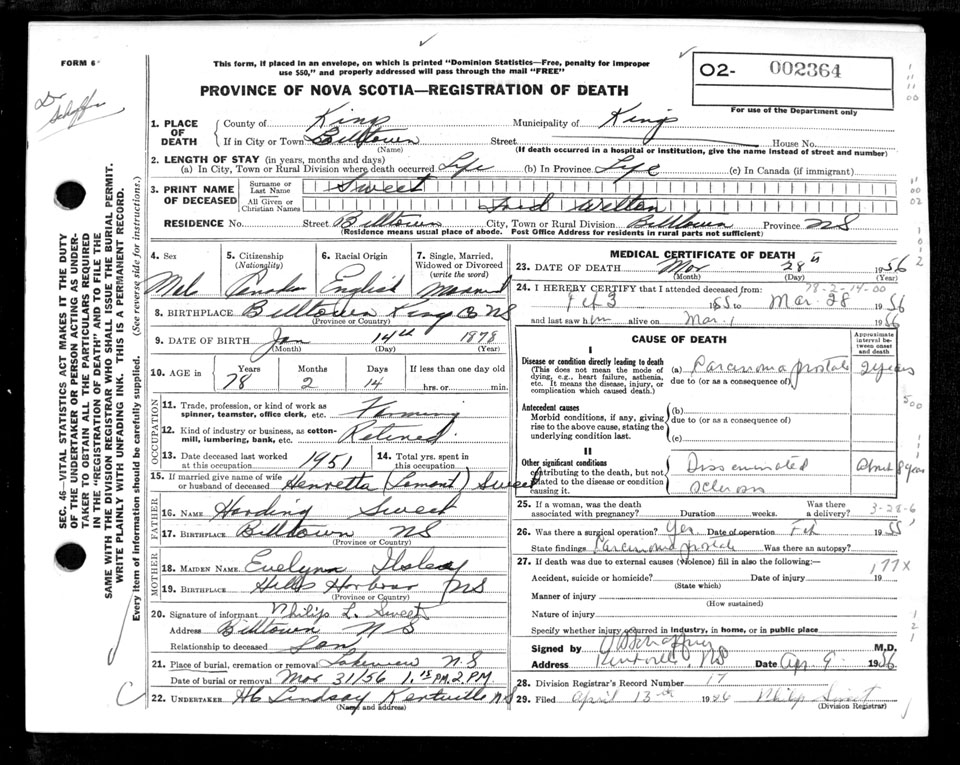 FORM 6
This form, if placed in an envelope, on which is printed "Dominion Statistics—Free, penalty for improper
use $50," and properly addressed will pass through the mail "FREE"
PROVINCE OF NOVA SCOTIA—REGISTRATION OF DEATH
O2- 002364
For use of the Department only
Dr
SEC. 46—VITAL STATISTICS ACT MAKES IT THE DUTY
OF THE UNDERTAKER OR PERSON ACTING AS UNDER-
TAKER TO OBTAIN ALL THE PARTICULARS REQUIRED
IN THE "REGISTRATION OF DEATH" AND TO FILE THE
SAME WITH THE DIVISION REGISTRAR WHO SHALL ISSUE THE BURIAL PERMIT.
WRITE PLAINLY WITH UNFADING INK. THIS IS A PERMANENT RECORD.
Every item of information should be carefully supplied. (See reverse side for instructions.)
1. PLACE OF DEATH
County of Kings Municipality of Kings
If in City or Town Billtown Street House No.
(Name) (If death occurred in a hospital or institution, give the name instead of street and number)
2. LENGTH OF STAY (in years, months and days)
(a) In City, Town or Rural Division where death occurred Life (b) In Province Life (c) In Canada (if immigrant)
3. PRINT NAME OF DECEASED
Surname or Last Name Sweet
All Given or Christian Names Fred Welton
RESIDENCE No. Street Billtown City, Town or Rural Division Billtown Province NS
(Residence means usual place of abode. Post Office Address for residents in rural parts not sufficient)
4. Sex
Male
5. Citizenship
(Nationality)
Canadian
6. Racial Origin
English
7. Single, Married,
Widowed or Divorced
(write the word)
Married
8. BIRTHPLACE Billtown Kings Co NS
(Province or Country)
9. DATE OF BIRTH Jan 14th 1878
(Month) (Day) (Year)
10. AGE in Years Months Days If less than one day old
78 2 14 hrs. or min.
OCCUPATION
11. Trade, profession, or kind of work as
spinner, teamster, office clerk, etc. Farming
12. Kind of industry or business, as cotton-
mill, lumbering, bank, etc. Retired
13. Date deceased last worked
at this occupation 1951
14. Total yrs. spent in
this occupation
15. If married give name of wife
or husband of deceased Henretta (Lamont) Sweet
FATHER
16. Name Harding Sweet
17. Birthplace Billtown NS
(Province or Country)
MOTHER
18. Maiden Name Evelynn Ilsley
19. Birthplace Halls Harbour NS
(Province or Country)
20. Signature of informant Philip L. Sweet
Address Billtown NS
Relationship to deceased Son
21. Place of burial, cremation or removal Lakeview N.S
Date of burial or removal Mar 31/56
22. Undertaker Lindsay Kentville NS
(Name and address)
MEDICAL CERTIFICATE OF DEATH
23. DATE OF DEATH Mar 28th 1956
(Month) (Day) (Year)
78-2-14-00
24. I HEREBY CERTIFY that I attended deceased from:
Feb 3 1955 to Mar. 28 1956
and last saw him alive on Mar. 1 1956
CAUSE OF DEATH
Approximate interval between onset and death
I
Disease or condition directly leading to death
(This does not mean the mode of
dying, e.g., heart failure, asthenia,
etc. It means the disease, injury, or
complication which caused death.)
(a) Carcinoma prostate 2 years
due to (or as a consequence of)
Antecedent causes
Morbid conditions, if any, giving
rise to the above cause, stating the
underlying condition last.
(b)
due to (or as a consequence of)
(c)
II
Other significant conditions
contributing to the death, but not
related to the disease or condition
causing it.
Disseminated
sclerosis
About 8 years
25. If a woman, was the death
associated with pregnancy? Duration weeks. Was there a delivery?
3-28-6
26. Was there a surgical operation? Yes Date of operation Feb 1955
State findings Carcinoma prostate Was there an autopsy?
27. If death was due to external causes (violence) fill in also the following: 177X
Accident, suicide or homicide? Date of injury 19
(State which)
Manner of injury
(How sustained)
Nature of injury
Specify whether injury occurred in industry, in home, or in public place
Signed by M.D.
Address Kentville NS Date Apr 9 1956
28. Division Registrar's Record Number 17
29. Filed April 13th 1956 Philip Sweet
(Division Registrar)